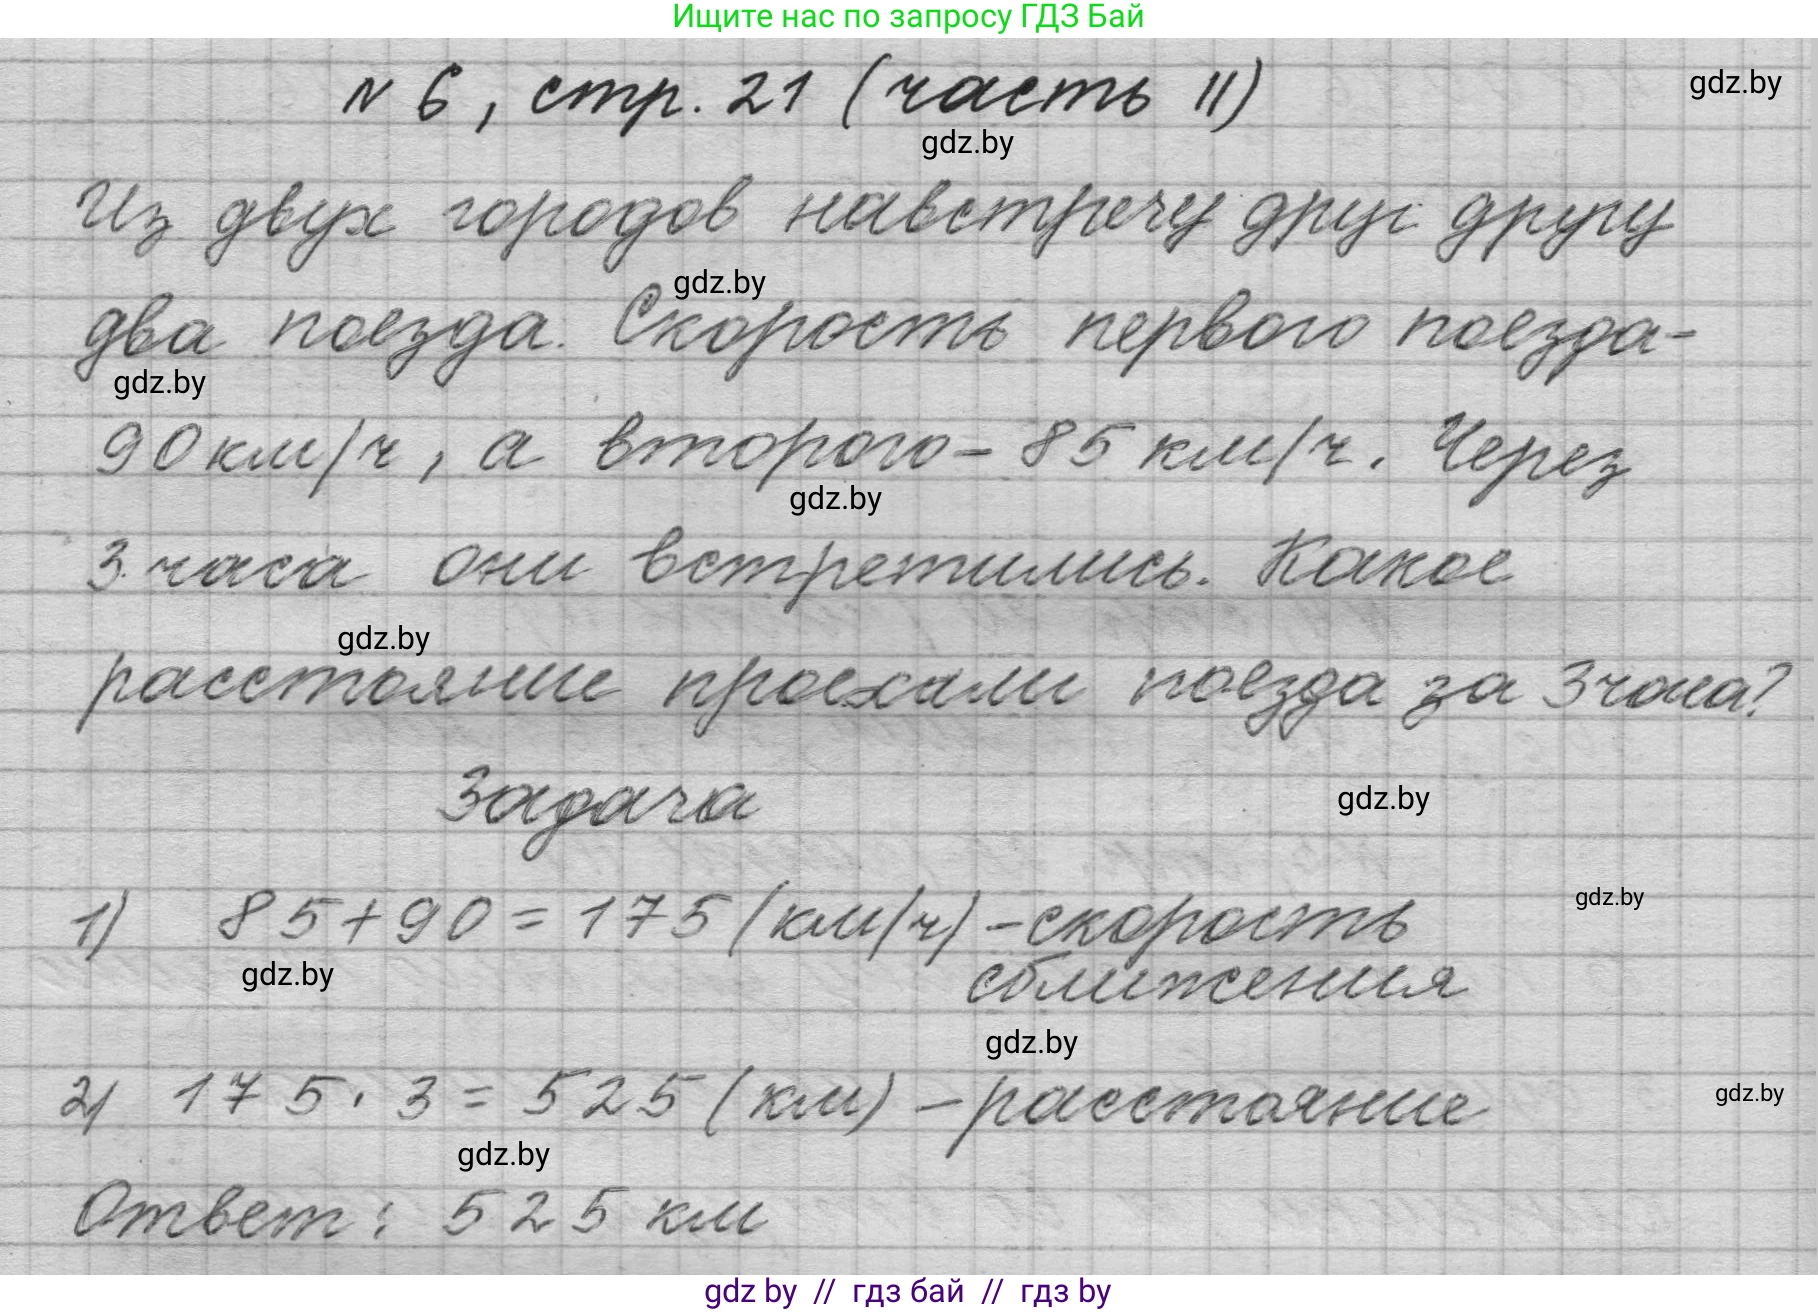 Ищите нас по запросу ГДЗ Бай
N 6, стр. 21 (часть II)
gdz.by
gdz.by
Из двух городов навстречу друг другу
gdz.by
два поезда. Скорость первого поезда-
gdz.by
90 км/ч, а второго - 85 км/ч. Через
gdz.by
3 часа они встретились. Какое
gdz.by
расстояние проехали поезда за 3 часа?
Задача
gdz.by
1) 85+90=175 (км/ч) - скорость
gdz.by
сближения
gdz.by
gdz.by
2) 175·3=525 (км) - расстояние
gdz.by
gdz.by
Ответ: 525 км
gdz by // гдз бай // гдз by